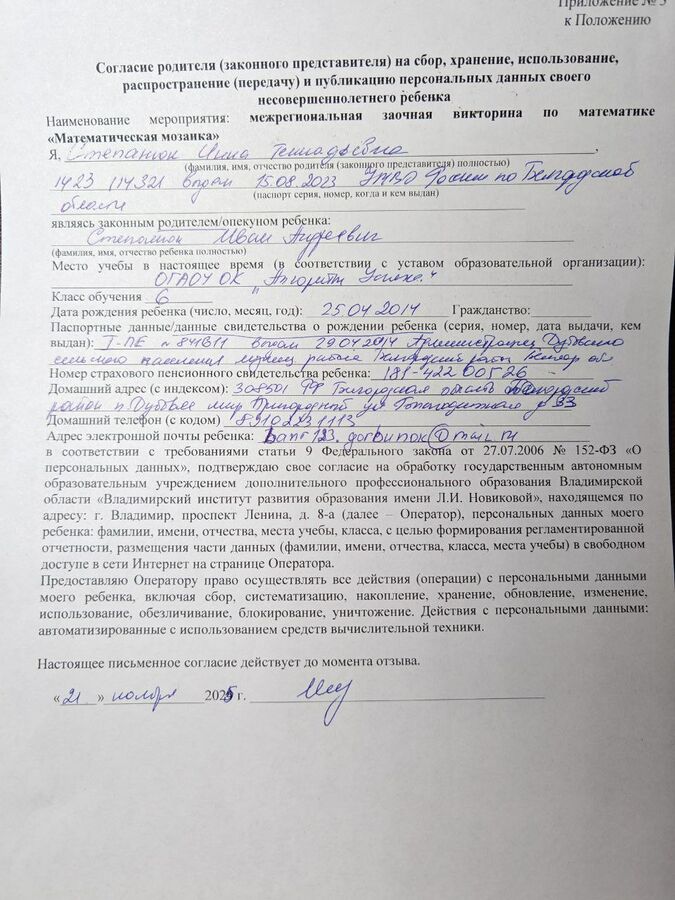 Приложение № 3
к Положению
Согласие родителя (законного представителя) на сбор, хранение, использование,
распространение (передачу) и публикацию персональных данных своего
несовершеннолетнего ребенка
Наименование мероприятия: межрегиональная заочная викторина по математике
«Математическая мозаика»
Я, Степанюк Инна Геннадьевна,
(фамилия, имя, отчество родителя (законного представителя) полностью)
1423 114321 выдан 15.08.2023 УМВД России по Белгородской
(паспорт серия, номер, когда и кем выдан)
области
являясь законным родителем/опекуном ребенка:
Степанюк Иван Андреевич
(фамилия, имя, отчество ребенка полностью)
Место учебы в настоящее время (в соответствии с уставом образовательной организации):
ОГАОУ ОК "Алгоритм Успеха"
Класс обучения 6
Дата рождения ребенка (число, месяц, год): 25.04.2014 Гражданство:
Паспортные данные/данные свидетельства о рождении ребенка (серия, номер, дата выдачи, кем
выдан): I-ЛЕ № 841311 выдан 29.04.2014 Администрацией Дубовского
сельского поселения район Белгородский
Номер страхового пенсионного свидетельства ребенка: 181-422 005 26
Домашний адрес (с индексом): 308501 РФ Белгородская область Белгородский
район п. Дубовое мкр Пригородный ул д 33
Домашний телефон (с кодом) 89102231113
Адрес электронной почты ребенка:
в соответствии с требованиями статьи 9 Федерального закона от 27.07.2006 № 152-ФЗ «О
персональных данных», подтверждаю свое согласие на обработку государственным автономным
образовательным учреждением дополнительного профессионального образования Владимирской
области «Владимирский институт развития образования имени Л.И. Новиковой», находящемся по
адресу: г. Владимир, проспект Ленина, д. 8-а (далее – Оператор), персональных данных моего
ребенка: фамилии, имени, отчества, места учебы, класса, с целью формирования регламентированной
отчетности, размещения части данных (фамилии, имени, отчества, класса, места учебы) в свободном
доступе в сети Интернет на странице Оператора.
Предоставляю Оператору право осуществлять все действия (операции) с персональными данными
моего ребенка, включая сбор, систематизацию, накопление, хранение, обновление, изменение,
использование, обезличивание, блокирование, уничтожение. Действия с персональными данными:
автоматизированные с использованием средств вычислительной техники.
Настоящее письменное согласие действует до момента отзыва.
«21» ноября 2025 г.